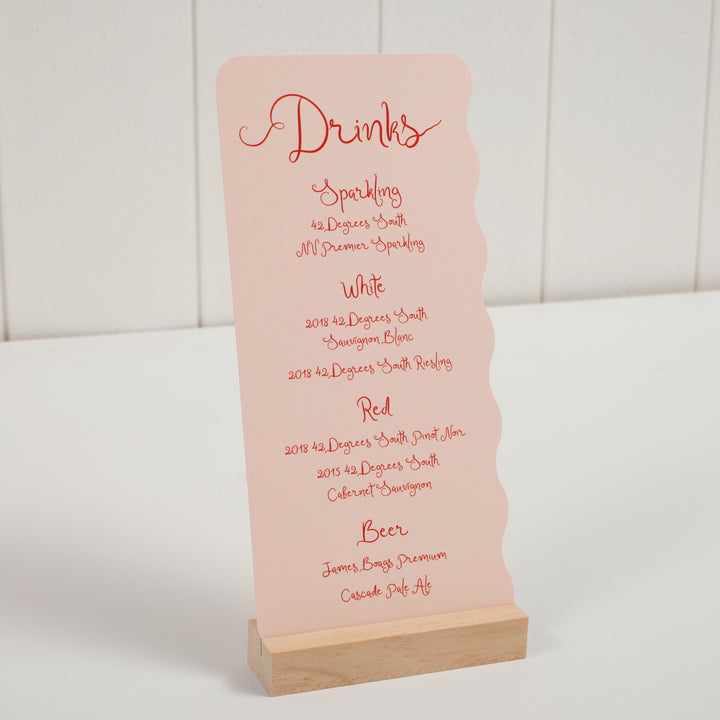 Drinks
Sparkling
42 Degrees South
NV Premier Sparkling
White
2018 42 Degrees South
Sauvignon Blanc
2018 42 Degrees South Riesling
Red
2018 42 Degrees South Pinot Noir
2015 42 Degrees South
Cabernet Sauvignon
Beer
James Boags Premium
Cascade Pale Ale